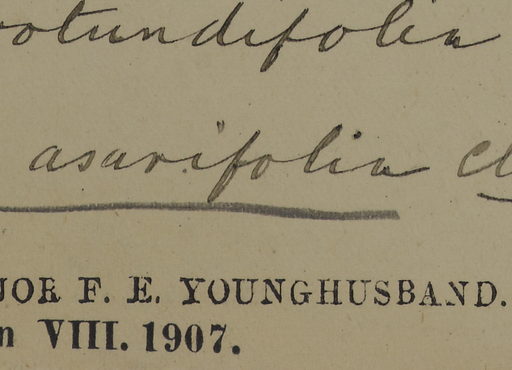 rotundifolia
asarifolia Cl
JOR F. E. YOUNGHUSBAND.
n VIII. 1907.